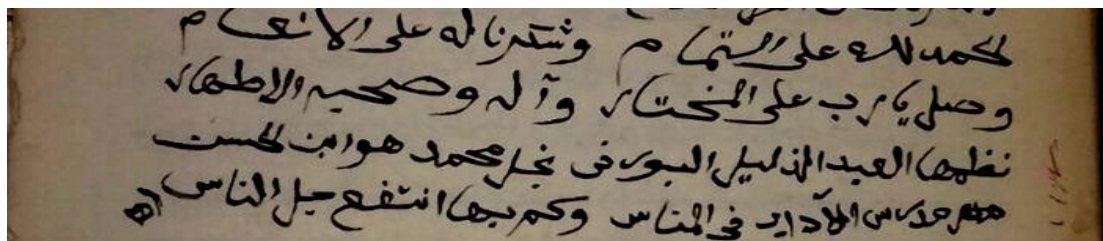 الحمد لله على التمام وشكرنا له على الانعام
وصل يا رب على المختار وآله وصحبه الاطهار
نظمها العبد الذليل البورنى نجل محمد هو ابن الحسن
مدرس الآداب فى الناس وكم بها انتفع جل الناس اه